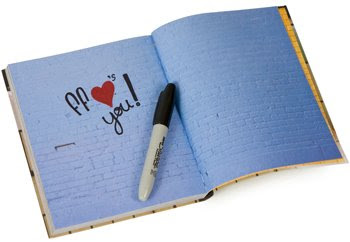 ff ❤'s
you!